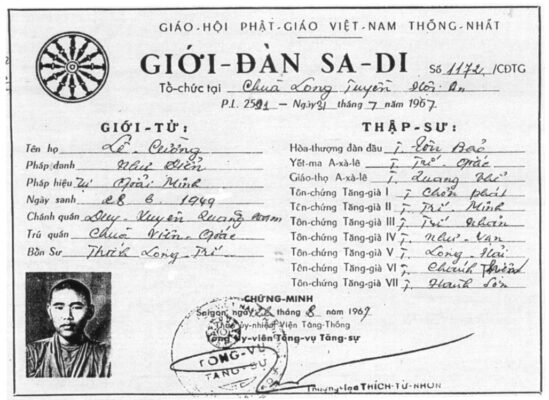 GIÁO-HỘI PHẬT-GIÁO VIỆT-NAM THỐNG-NHẤT
GIỚI-ĐÀN SA-DI Số 1172/CĐTG
Tổ-chức tại Chùa Long Tuyền Hội An
P.L. 2511 - Ngày 31 tháng 7 năm 1967
GIỚI-TỬ:
Tên họ Lê Cường
Pháp danh Như Điển
Pháp hiệu Tự Giải Minh
Ngày sanh 28 6 1949
Chánh quán Duy-Xuyên Quảng Nam
Trú quán Chùa Viên-Giác
Bổn Sư Thích Long Trí
THẬP-SƯ:
Hòa-thượng đàn đầu T. Tôn Bảo
Yết-ma A-xà-lê T. Trí Giác
Giáo-thọ A-xà-lê T. Quang Thể
Tôn-chứng Tăng-già I T. Chơn Phát
Tôn-chứng Tăng-già II T. Trí Minh
Tôn-chứng Tăng-già III T. Trí Nhãn
Tôn-chứng Tăng-già IV T. Như Vạn
Tôn-chứng Tăng-già V T. Long Hải
Tôn-chứng Tăng-già VI T. Chánh
Tôn-chứng Tăng-già VII T. Hạnh Sơn
CHỨNG-MINH
Saigon, ngày tháng 8 năm 1967
Thừa ủy-nhiệm Viện Tăng-Thống
Tổng ủy-viên Tổng-vụ Tăng-sự
TỔNG-VỤ
TĂNG-SỰ
Thượng-tọa THÍCH-TỪ-NHƠN